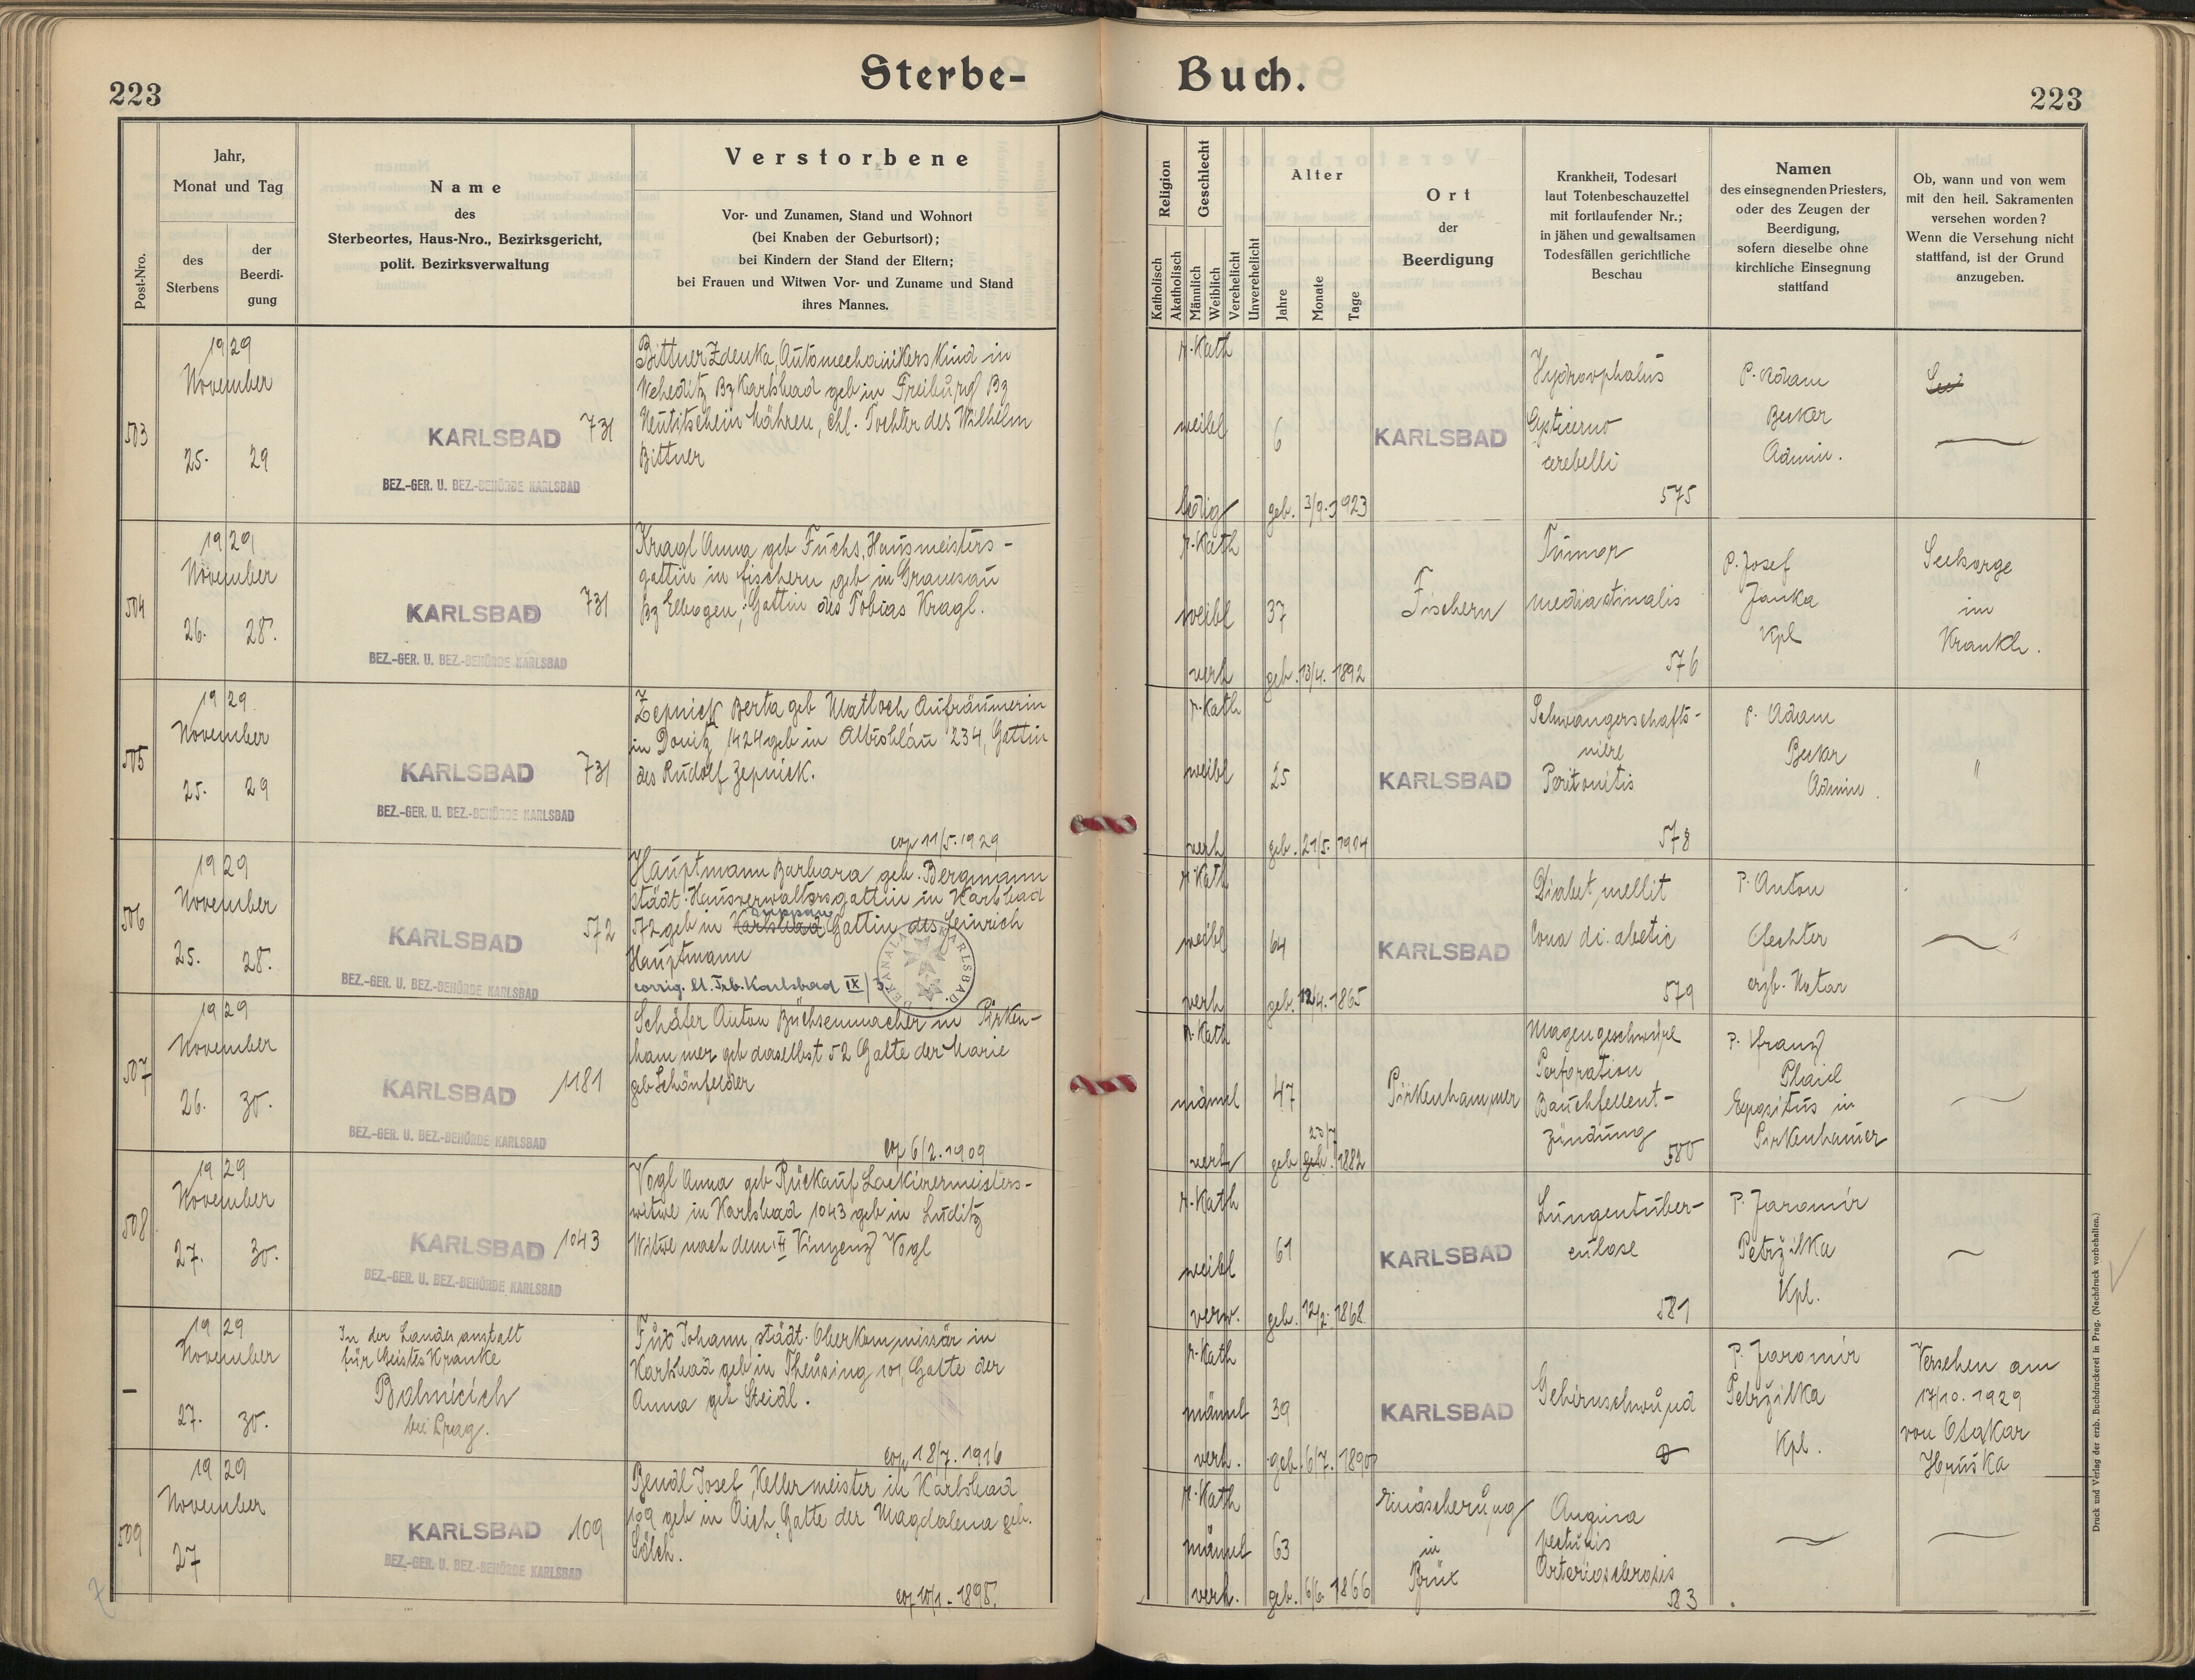 223
Sterbe-
Buch.
223
Post-Nro.
Jahr,
Monat und Tag
des
Sterbens
der
Beerdi-
gung
Name
des
Sterbeortes, Haus-Nro., Bezirksgericht,
polit. Bezirksverwaltung
Verstorbene
Vor- und Zunamen, Stand und Wohnort
(bei Knaben der Geburtsort);
bei Kindern der Stand der Eltern;
bei Frauen und Witwen Vor- und Zuname und Stand
ihres Mannes.
Religion
Katholisch
Akatholisch
Geschlecht
Männlich
Weiblich
Verehelicht
Unverehelicht
Alter
Jahre
Monate
Tage
Ort
der
Beerdigung
Krankheit, Todesart
laut Totenbeschauzettel
mit fortlaufender Nr.;
in jähen und gewaltsamen
Todesfällen gerichtliche
Beschau
Namen
des einsegnenden Priesters,
oder des Zeugen der
Beerdigung,
sofern dieselbe ohne
kirchliche Einsegnung
stattfand
Ob, wann und von wem
mit den heil. Sakramenten
versehen worden?
Wenn die Versehung nicht
stattfand, ist der Grund
anzugeben.
503
1929
November
25. 29
KARLSBAD 731
BEZ.-GER. U. BEZ.-BEHÖRDE KARLSBAD
Bittner Zdenka, Automechanikers Kind in
Weheditz Bz Karlsbad geb in Freiburg Bz
Neutitschein Mähren, ehl. Tochter des Wilhelm
Bittner
r. Kath
weibl
ledig
6
geb. 3/9. 923
KARLSBAD
Hydrocphalus
Cysticerus
cerebelli
575
P. Adam
Becker
Admin.
504
1929
November
26. 28.
KARLSBAD 731
BEZ.-GER. U. BEZ.-BEHÖRDE KARLSBAD
Kragl Anna geb Fuchs, Hausmeisters-
gattin in Fischern geb in Granesau
Bz Elbogen, Gattin des Tobias Kragl.
r. Kath
weibl
verh
37
geb. 13/4. 1892
Fischern
Tumor
mediastinalis
576
P. Josef
Janka
Kpl
Seelsorge
im
Krankh.
505
1929
November
25. 29
KARLSBAD 731
BEZ.-GER. U. BEZ.-BEHÖRDE KARLSBAD
Zepnick Berta geb Matloch Aufräumerin
in Donitz 1424 geb in Altrohlau 234, Gattin
des Rudolf Zepnick.
cop 11/5. 1929
r. Kath
weibl
verh
25
geb. 21/5. 1904
KARLSBAD
Schwangerschafts-
niere
Peritonitis
578
P. Adam
Becker
Admin.
"
506
1929
November
25. 28.
KARLSBAD 572
BEZ.-GER. U. BEZ.-BEHÖRDE KARLSBAD
Hauptmann Barbara geb. Bergmann
städt. Hausverwaltersgattin in Karlsbad
572 geb in Karlsbad Gattin des Heinrich
Duppau
Hauptmann
corrig. lt. Trb. Karlsbad IX/3.
DEKANALAMT KARLSBAD
r. Kath
weibl
verh
64
geb. 12/4. 1865
KARLSBAD
Diabet, mellit
Coma di. abetic
579
P. Anton
Fechter
erzb. Notar
"
507
1929
November
26. 30.
KARLSBAD 1181
BEZ.-GER. U. BEZ.-BEHÖRDE KARLSBAD
Schäfer Anton Büchsenmacher in Pirken-
hammer geb daselbst 52 Gatte der Marie
geb Schönfelder
cop 6/2. 1909
r. Kath
männl
verh
47
geb 1882
Pirkenhammer
Magengeschwüre
Perforation
Bauchfellent-
zündung
580
P. Franz
Plaid
Expositus in
Pirkenhamer
508
1929
November
27. 30.
KARLSBAD 1043
BEZ.-GER. U. BEZ.-BEHÖRDE KARLSBAD
Vogl Anna geb Rückauf Lackierermeisters-
witwe in Karlsbad 1043 geb in Luditz
Witwe nach dem II Vinzenz Vogl
r. Kath
weibl
verw.
61
geb. 12/2. 1868
KARLSBAD
Lungentuber-
culose
581
P. Jaromir
Petržilka
Kpl.
–
1929
November
27. 30.
In der Landesanstalt
für Geisteskranke
Bohnicich
bei Prag.
Fux Johann, städt. Oberkommissär in
Karlsbad geb in Theusing 101, Gatte der
Anna geb Steidl.
cop 18/7. 1916
r. Kath
männl
verh.
39
geb. 6/7. 1890
KARLSBAD
Gehirnschwund
P. Jaromir
Petržilka
Kpl.
Versehen am
17/10. 1929
von Otakar
Hruška
509
1929
November
27
KARLSBAD 109
BEZ.-GER. U. BEZ.-BEHÖRDE KARLSBAD
Bendl Josef, Kellermeister in Karlsbad
109 geb in Aich, Gatte der Magdalena geb.
Sölch.
cop 10/1. 1898.
r. Kath
männl
verh.
63
geb. 6/6. 1866
Einäscherung
in
Brüx
Angina
pectoris
Arteriosclerosis
583
Druck und Verlag der erzb. Buchdruckerei in Prag. (Nachdruck vorbehalten.)